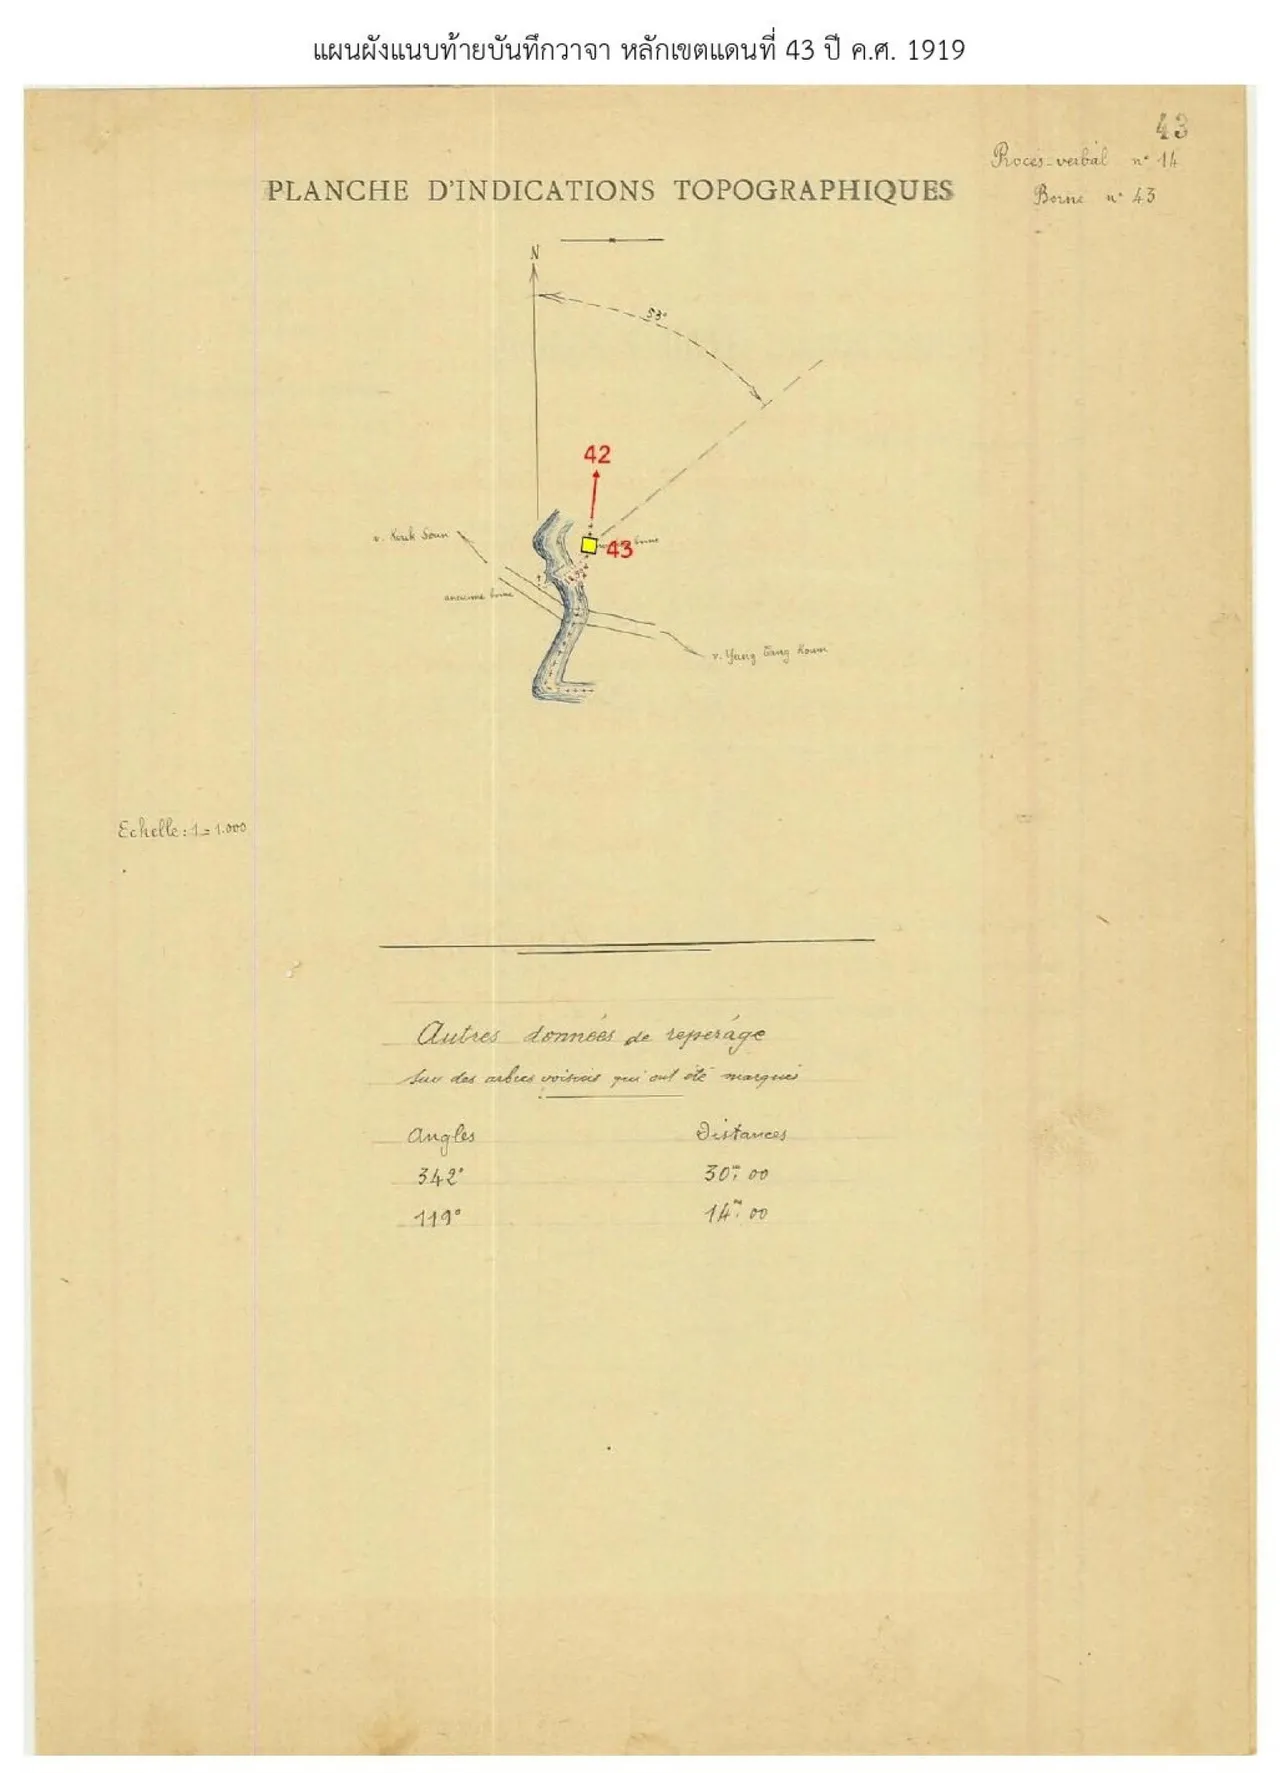 แผนผังแนบท้ายบันทึกวาจา หลักเขตแดนที่ 43 ปี ค.ศ. 1919
43
Procès-verbal n° 14
Borne n° 43
PLANCHE D'INDICATIONS TOPOGRAPHIQUES
N
53°
42
v. Kouk Soun
borne
43
ancienne borne
v. Yang Eang Koum
Echelle : 1 = 1.000
Autres données de reperáge
sur des arbres voisins qui ont été marqués
Angles Distances
342° 30m, 00
119° 14m, 00